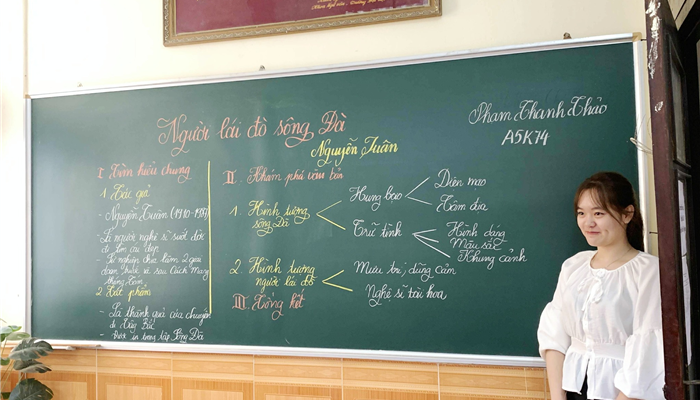 Người lái đò sông Đà
Nguyễn Tuân
Phạm Thanh Thảo
A5K74
I. Tìm hiểu chung
1. Tác giả
- Nguyễn Tuân (1910-1987)
- Là người nghệ sĩ suốt đời
đi tìm cái đẹp
- Sự nghiệp chia làm 2 giai
đoạn trước và sau Cách Mạng
tháng Tám
2. Tác phẩm
- Là thành quả của chuyến
đi Tây Bắc
- Được in trong tập Sông Đà
II. Khám phá văn bản
1. Hình tượng
sông Đà
Hung bạo
Diện mạo
Tâm địa
Trữ tình
Hình dáng
Màu sắc
Khung cảnh
2. Hình tượng
người lái đò
Mưu trí, dũng cảm
Nghệ sĩ tài hoa
III. Tổng kết